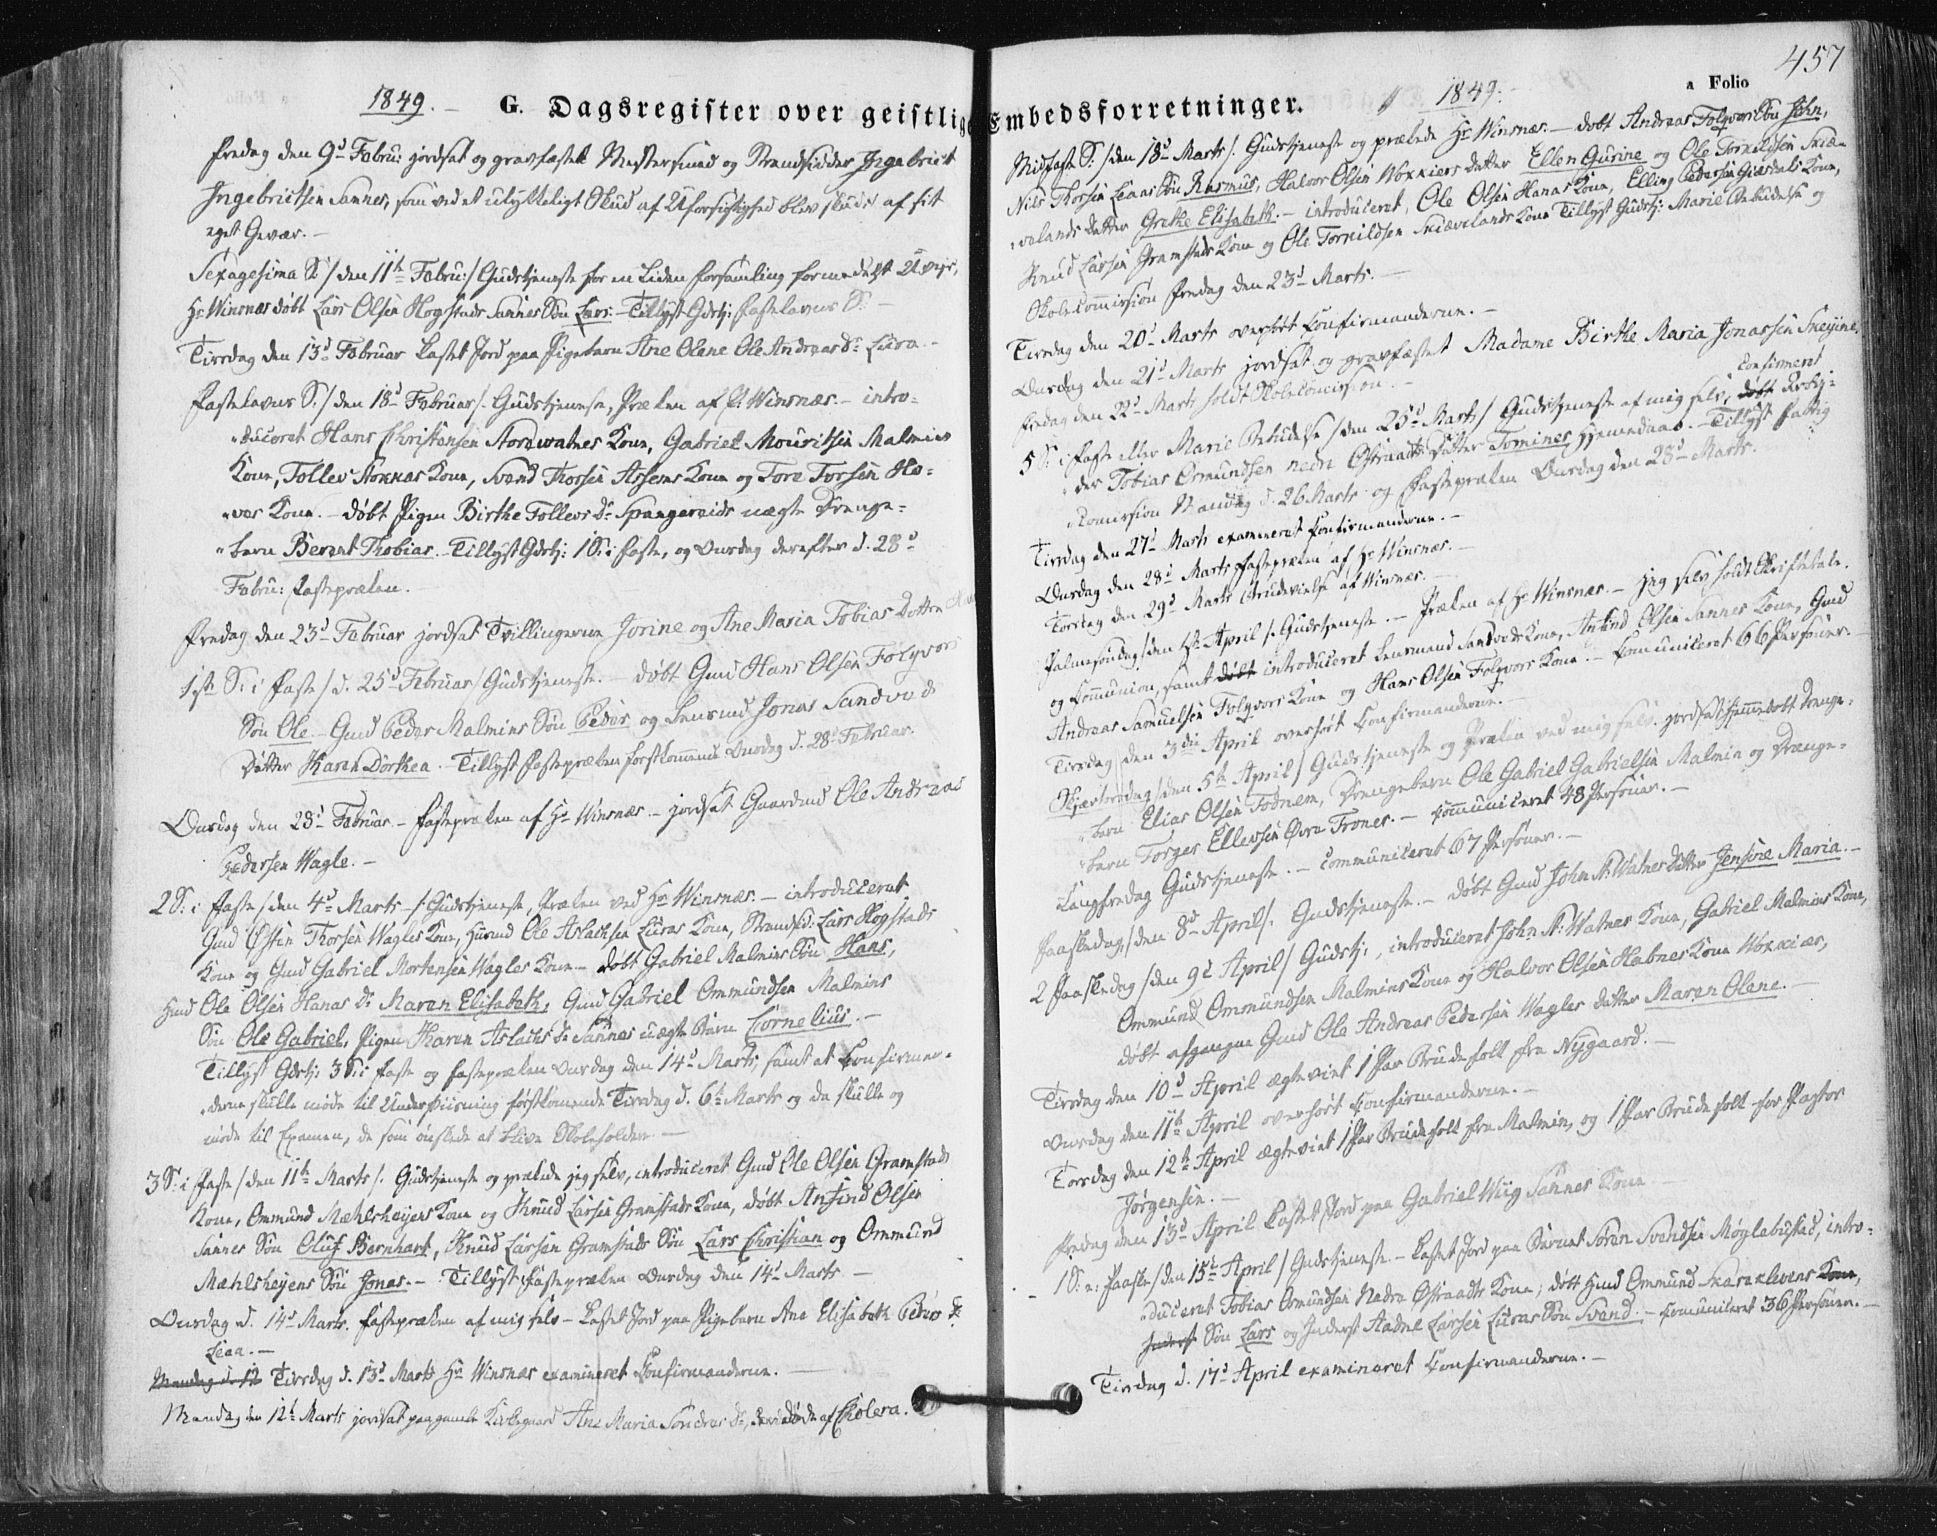 1849. –
G. Dagsregister over geistlige Embedsforretninger.
Fredag den 9d Febru: jordsat og gravfæstet Mestersmed og Strandsidder Ingebrict
Ingebrictsen Sannes, som ved et ulykkeligt Skud af Uforsigtighed blev skudt af sit
eget Gevær. –
Sexagesima S: / den 11te Febru: / Gudstjeneste for en liden Forsamling formedelst Uvejr,
Hr Winsnæs døbt Lars Olsen Hogstads Sannes Søn Lars. – Tillyst Gdstj: Fastelavns S: –
Tirsdag den 13d Februar kastet Jord paa Pigebarn Ane Olene Ole Andreas Dr Lura. –
Fastelavns S. / den 18d Februar /. Gudstjeneste, Præken af Hr Winsnæs. – intro-
duceret Hans Christensen Storewatnes Kone, Gabriel Mouritsen Malmins
Kone, Tollev Stokkas Kone, Svend Thorsen Assems Kone og Tore Torsen Ho-
ves Kone. – døbt Pigen Birthe Tollevs Dr Spangereids uægte Drenge-
barn Berent Thobias. – Tillyst Gdstj: 1 S: i Faste, og Onsdag derefter d. 28d
Febru: Fastepræken. –
Fredag den 23d Februar jordsat Tvillingerne Jorine og Ane Maria Tobias Døttre
1ste S: i Faste / d. 25d Februar / Gudstjeneste. – døbt Gmd Hans Olsen Folqvors
Søn Ole – Gmd Peder Malmins Søn Peder og Lensmd Jonas Sandveds
Datter Karen Dorthea. – Tillyst Fastepræken førstkommende Onsdag d. 28d Februar.
Onsdag den 28d Februar – Fastepræken af Hr Winsnæs. – jordsat Gaardmd Ole Andreas
Pedersen Wagle. –
2 S: i Faste / den 4d Marts – / Gudstjeneste, Præken ved Hr Winsnæs. – introduceret
Gmd Østen Thorsen Wagles Kone, Husmd Ole Aslachsen Luras Kone, Strandsid: Lars Hogstads
Kone og Gmd Gabriel Mortensen Wagles Kone – døbt Gabriel Malmins Søn Hans,
Hmd Ole Olsen Hanas Dr Maren Elisabeth, Gmd Gabriel Ommundsen Malmins
Søn Ole Gabriel, Pigen Karen Aslachs Dr Sannes uægte Barn Cornelius. –
Tillyst Gdstj: 3 S: i Faste og Fastepræken Onsdag den 14d Marts, samt at Confirman-
derne skulle møde til Underviisning førstkomende Tirsdag d. 6te Marts og da skulle og
møde til Examen, de som ønskede at blive Skoleholdere –
3 S: i Faste / den 11te Marts /. Gudstjeneste og prækede jeg selv, introduceret Gmd Ole Olsen Gramstads
Kone, Ommund Mæhlshejens Kone og Knud Larsen Gramstads Kone, døbt Anfind Olsen
Sannes Søn Oluf Bernhart, Knud Larsen Gramstads Søn Lars Christian og Ommund
Mæhlshejens Søn Jonas. – Tillyst Fastepræken Onsdag den 14d Marts –
Onsdag d. 14d Marts. Fastepræken af mig selv – kastet Jord paa Pigebarn Ane Elisabeth Peders Dr
Leea. –
Mandag d. 12 Tirsdag d. 13d Marts Hr Winsnæs examineret Confirmanderne. –
Mandag den 12te Marts jordsat paa gamle Kirkegaard Ane Maria Søndres Dr, døde af Cholera.
457
a Folio
1849. –
Midfaste S: / den 18d Marts /. Gudstjeneste og prækede Hr Winsnæs. – døbt Andreas Folqvors Søn John,
Nils Thorsen Leaas Søn Rasmus, Halvor Olsen Wokkiers Datter Ellen Gurine og Ole Torkildsen Skiæ-
velands Datter Grethe Elisabeth. – introduceret, Ole Olsen Hanas Kone, Elling Pedersen Kone,
Knud Larsen Gramstads Kone og Ole Torkildsen Skiævelands Kone Tillyst Gudstj: Mariæ Bebudelse og
Skolecommission Fredag den 23d Marts. –
Tirsdag den 20d Marts overhørt Confirmanderne. –
Onsdag den 21d Marts jordsat og gravfæstet Madame Birthe Maria Jonassen
Fredag den 23d Marts holdt Skolecommission. –
5 S: i Faste eller Mariæ Bebudelse / den 25d Marts / Gudstjeneste af mig selv, døbt confirmeret
der Tobias Osmundsen nedre Østraadts Datter Tomine, hjemmedøbt. – Tillyst Fattig
Komission Mandag d. 26 Marts og Fastepræken Onsdag den 28d Marts.
Tirsdag den 27d Marts examineret Confirmanderne. –
Onsdag den 28d Marts Fastepræken af Hr Winsnæs. –
Torsdag den 29d Marts Brudevielse af Winsnæs. –
Palmesøndag / den 1ste April /. Gudstjeneste. – Præken af Hr Winsnæs. – jeg selv holdt Skriftetale.
og Communion, samt døbt introduceret Lensmand Sandveds Kone, Anfind Olsen Sannes Kone, Gmd
Andreas Samuelsen Folqvors Kone og Hans Olsen Folqvors Kone. – Comuniceret 66 Personer. –
Tirsdag den 3die April overhørt Confirmanderne.
Skjærtorsdag / den 5te April / Gudstjeneste og Præken ved mig selv. jordsat hjemmedøbt Drenge-
barn Elias Olsen Fodnem, Drengebarn Ole Gabriel Gabrielsen Malmin og Drenge-
barn Torger Ellevsen Øvre Trones. – Communiceret 48 Personer. –
Langfredag Gudstjeneste. – Communiceret 67 Personer. –
Paaskedag / den 8de April /. Gudstjeneste. – døbt Gmd John N: Watnes Datter Jensine Maria. –
2 Paaskedag / den 9d April / Gudstj:, introduceret John N: Watnes Kone, Gabriel Malmins Kone,
Ommund Ommundsen Malmins Kone og Halvor Olsen Kone Wokkier,
døbt afgangne Gmd Ole Andreas Pedersen Wagles Datter Maren Olene. –
Tirsdag den 10d April ægteviet 1 Par Brudefolk fra Nygaard. –
Onsdag den 11te April overhørt Confirmanderne. –
Torsdag den 12te April ægteviet 1 Par Brudefolk fra Malmin, og 1 Par Brudefolk for Pastor
Jørgensen. –
Fredag den 13d April kastet Jord paa Gabriel Wiig Sannes Kone. –
1 S. e: Paaske / den 15de April / Gudstjeneste. – kastet Jord paa Barnet Søren Svendsen Møglebustad, intro-
duceret Tobias Osmundsen Nedre Østraadts Kone, døbt Hmd Ommund Skaraklevens Kone,
Inderst Søn Lars og Inderst Aadne Larsen Luras Søn Svend. – Comuniceret 36 Personer. –
Tirsdag d. 17d April examineret Confirmanderne. –